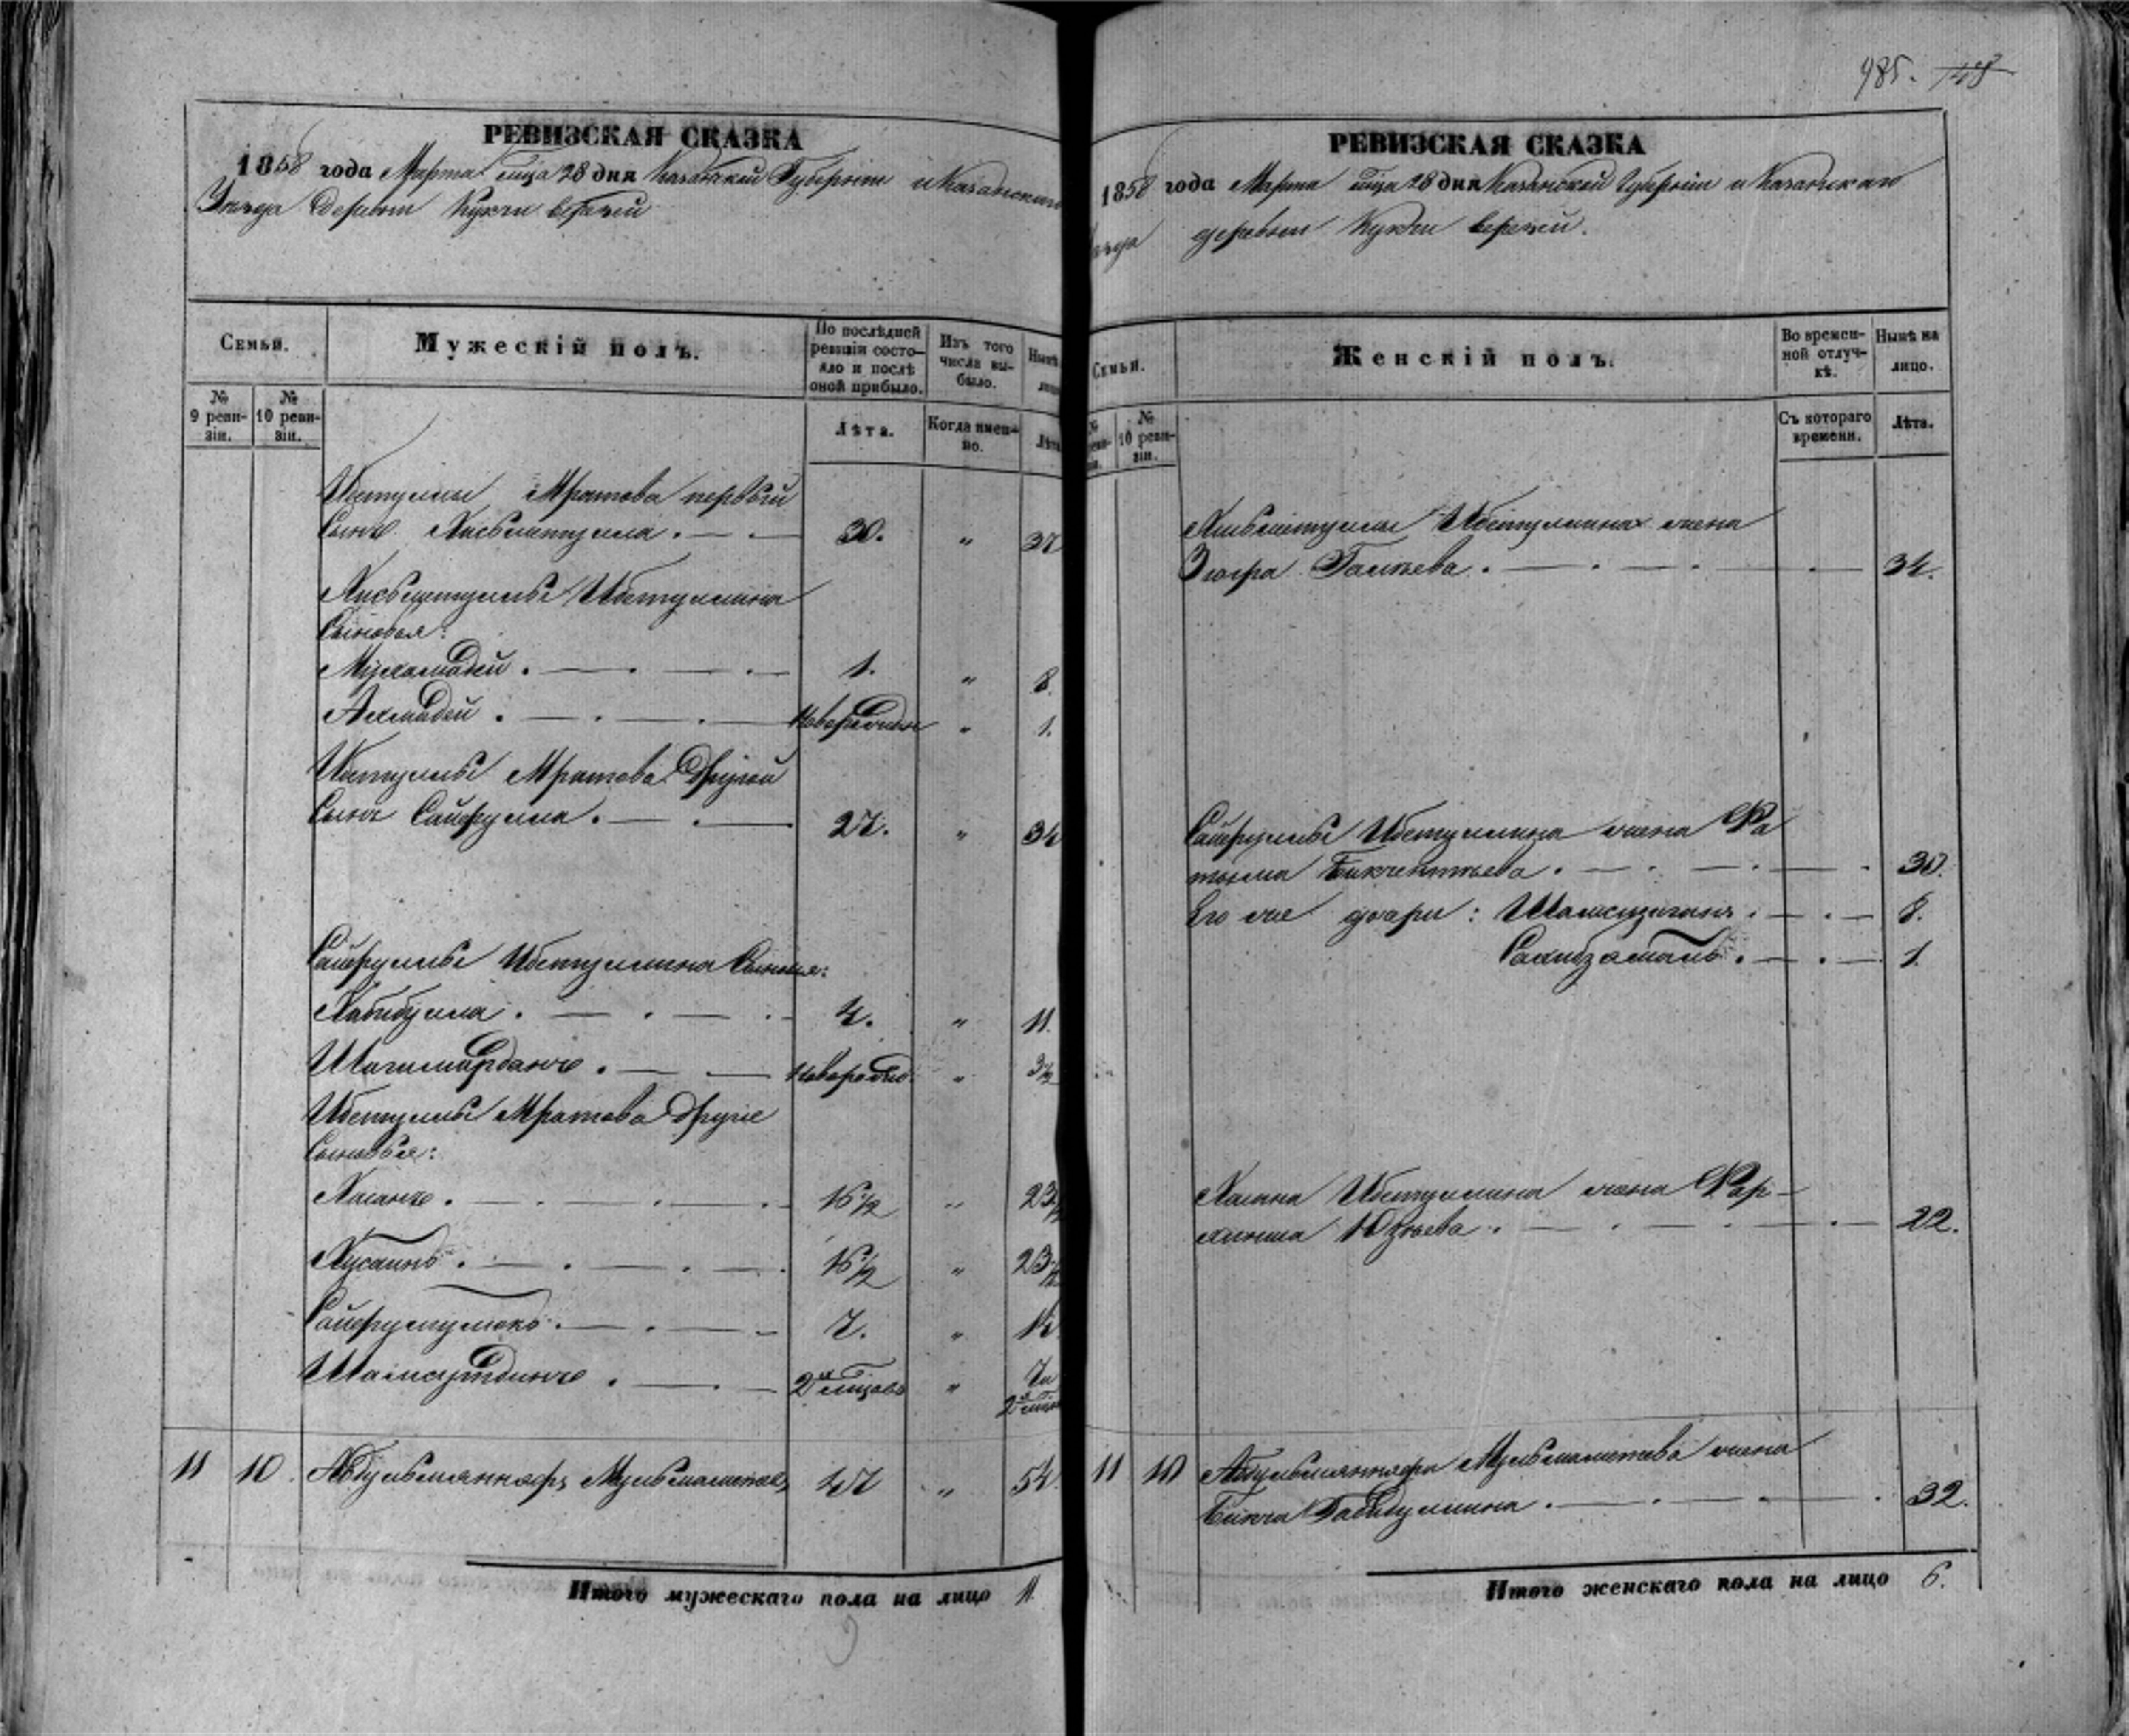 985. 148
РЕВИЗСКАЯ СКАЗКА
1858 года Марта мца 28 дня Казанской Губернiи и Казанскаго
Уезда деревни Кукчи верхней
Семьи.
Мужескiй полъ.
По послѣдней ревизiи состояло и послѣ оной прибыло.
Изъ того числа выбыло.
Нынѣ
лицо
№ 9 ревизiи.
№ 10 ревизiи.
Лѣта.
Когда именно.
Лѣта
Ибетуллы Мратова первый
сынъ Хисьметулла . 30. " 37
Хисьметуллы Ибетуллина
сыновья:
Мухамадей . 1. " 8.
Ахмадей . новорожден " 1.
Ибетуллы Мратова другой
сынъ Сайфулла . 27. " 34
Сайфуллы Ибетуллина сыновья:
Хабибулла . 4. " 11.
Шагимарданъ . новорожд. " 3½
Ибетуллы Мратова другiе
сыновья:
Хасанъ . 16½ " 23½
Хусаинъ . 16½ " 23½
Сайфулмулюкъ . 7. " 14
Шамсутдинъ . 2х мцовъ " 7 и
2 мца
11 10. Абдульменнафъ Мульмаметевъ 47 " 54.
Итого мужескаго пола на лицо 11.
РЕВИЗСКАЯ СКАЗКА
1858 года Марта мца 28 дня Казанской Губернiи и Казанскаго
уезда деревни Кукчи верхней.
Семьи.
Женскiй полъ.
Во временной отлучкѣ.
Нынѣ на лицо.
№ 10 ревизiи.
Съ котораго времени.
Лѣта.
Хисьметуллы Ибетуллина жена
Зюфра Галеева . 34.
Сайфуллы Ибетуллина жена Фа
тыма Бикчентьева . 30.
Его же дочери: Шамсизиганъ . 8.
Сахибзамалъ . 1.
Хасана Ибетуллина жена Фар-
хинша Юзеева . 22.
11 10 Абдульменнафа Мульмаметева жена
Бикча Габидуллина . 32.
Итого женскаго пола на лицо 6.